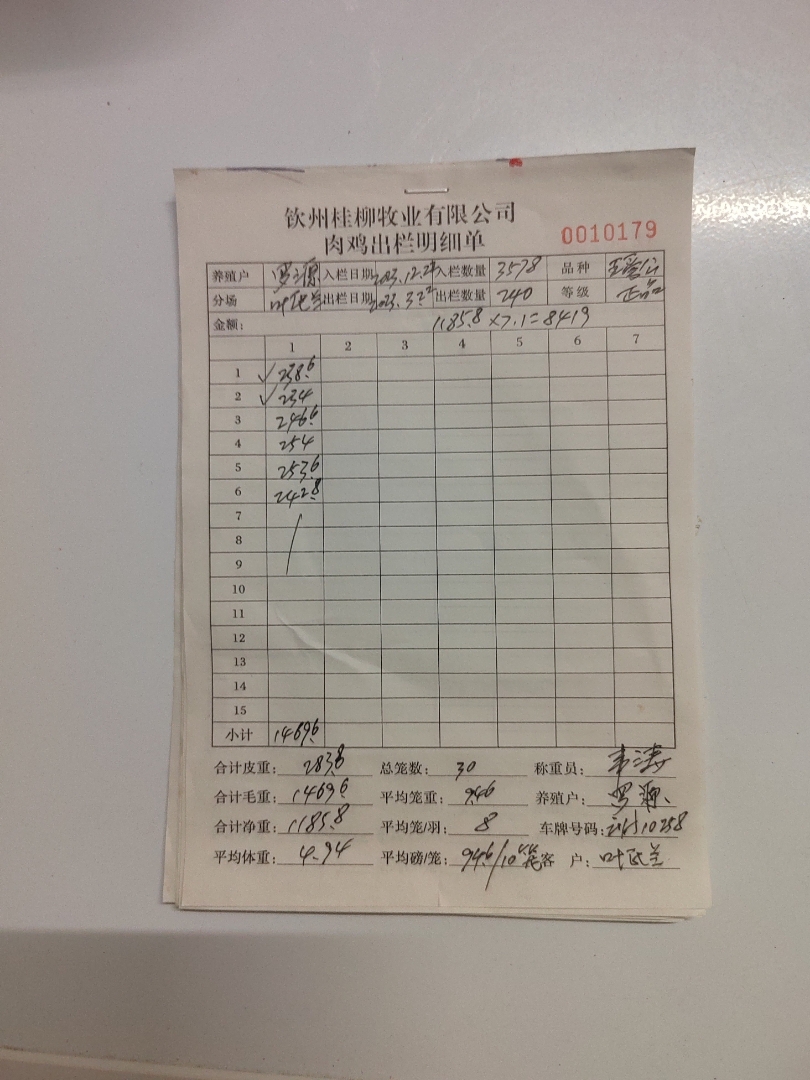 钦州桂柳牧业有限公司
肉鸡出栏明细单
0010179
养殖户 入栏日期 2023.12.24 入栏数量 3578 品种
分场 出栏日期 2023.3.22 出栏数量 240 等级 正品
金额: 1185.8×7.1=8419
1 2 3 4 5 6 7
1 ✓238.6
2 ✓234
3 246.6
4 254
5 253.6
6 242.8
7
8
9
10
11
12
13
14
15
小计 1469.6
合计皮重: 283.8 总笼数: 30 称重员:
合计毛重: 1469.6 平均笼重: 9.46 养殖户:
合计净重: 1185.8 平均笼/羽: 8 车牌号码: 10258
平均体重: 4.94 平均磅/笼: 94.6/10 客 户: